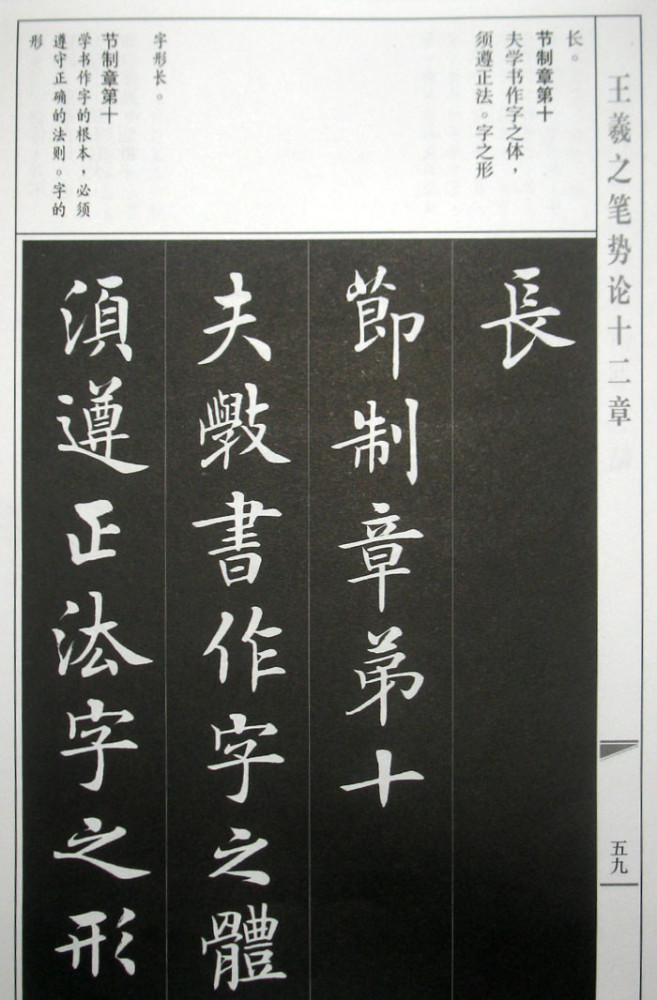 王羲之笔势论十二章
五九
长。
节制章第十
夫学书作字之体，
须遵正法。字之形
字形长。
节制章第十
学书作字的根本，必须
遵守正确的法则。字的
形
長
節制章第十
夫學書作字之體
須遵正法字之形